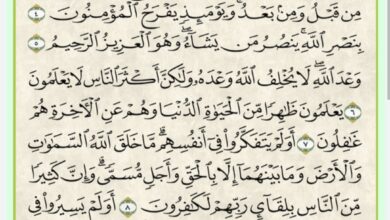 مِن قَبْلُ وَمِنۢ بَعْدُ وَيَوْمَئِذٍ يَفْرَحُ ٱلْمُؤْمِنُونَ ٤
بِنَصْرِ ٱللَّهِ يَنصُرُ مَن يَشَآءُ وَهُوَ ٱلْعَزِيزُ ٱلرَّحِيمُ ٥
وَعْدَ ٱللَّهِ لَا يُخْلِفُ ٱللَّهُ وَعْدَهُۥ وَلَٰكِنَّ أَكْثَرَ ٱلنَّاسِ لَا يَعْلَمُونَ
٦ يَعْلَمُونَ ظَٰهِرًا مِّنَ ٱلْحَيَوٰةِ ٱلدُّنْيَا وَهُمْ عَنِ ٱلْءَاخِرَةِ هُمْ
غَٰفِلُونَ ٧ أَوَلَمْ يَتَفَكَّرُوا۟ فِىٓ أَنفُسِهِم مَّا خَلَقَ ٱللَّهُ ٱلسَّمَٰوَٰتِ
وَٱلْأَرْضَ وَمَا بَيْنَهُمَآ إِلَّا بِٱلْحَقِّ وَأَجَلٍ مُّسَمًّى وَإِنَّ كَثِيرًا
مِّنَ ٱلنَّاسِ بِلِقَآئِ رَبِّهِمْ لَكَٰفِرُونَ ٨ أَوَلَمْ يَسِيرُوا۟ فِى